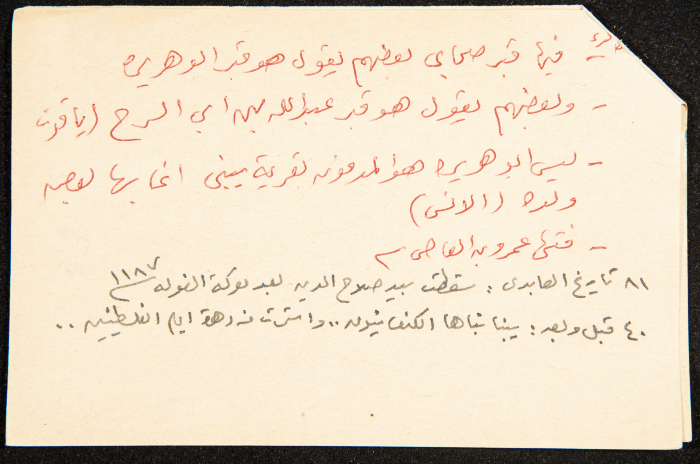 فيها قبر صحابي بعضهم يقول هو قبر ابو هريره
- وبعضهم يقول هو قبر عبدالله بن ابي السرح (ياقوت
- ليس ابو هريره هو المدفون بقرية يبنى انما بها بعض
ولده (الانس)
- فتحها عمرو بن العاص
٨١ تاريخ العابدي : سقطت بيد صلاح الدين بعد معركة الفوله ١١٨٧
٤٠ قبل وبعد : يبنا بناها الكنعانيون .. واشتهرت مزدهرة ايام الفلسطينيين ..